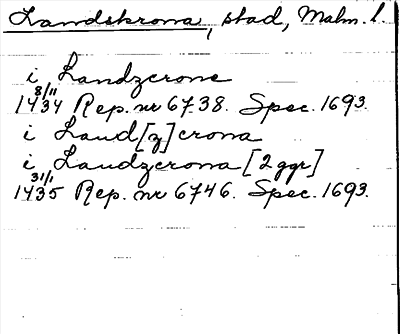 Landskrona, stad, Malm. l.
i Landzcrone
8/11
1434 Rep. nr 6738. Spec. 1693.
i Land[z]crona
i Landzcrona [2 ggr]
31/1
1435 Rep. nr 6746. Spec. 1693.